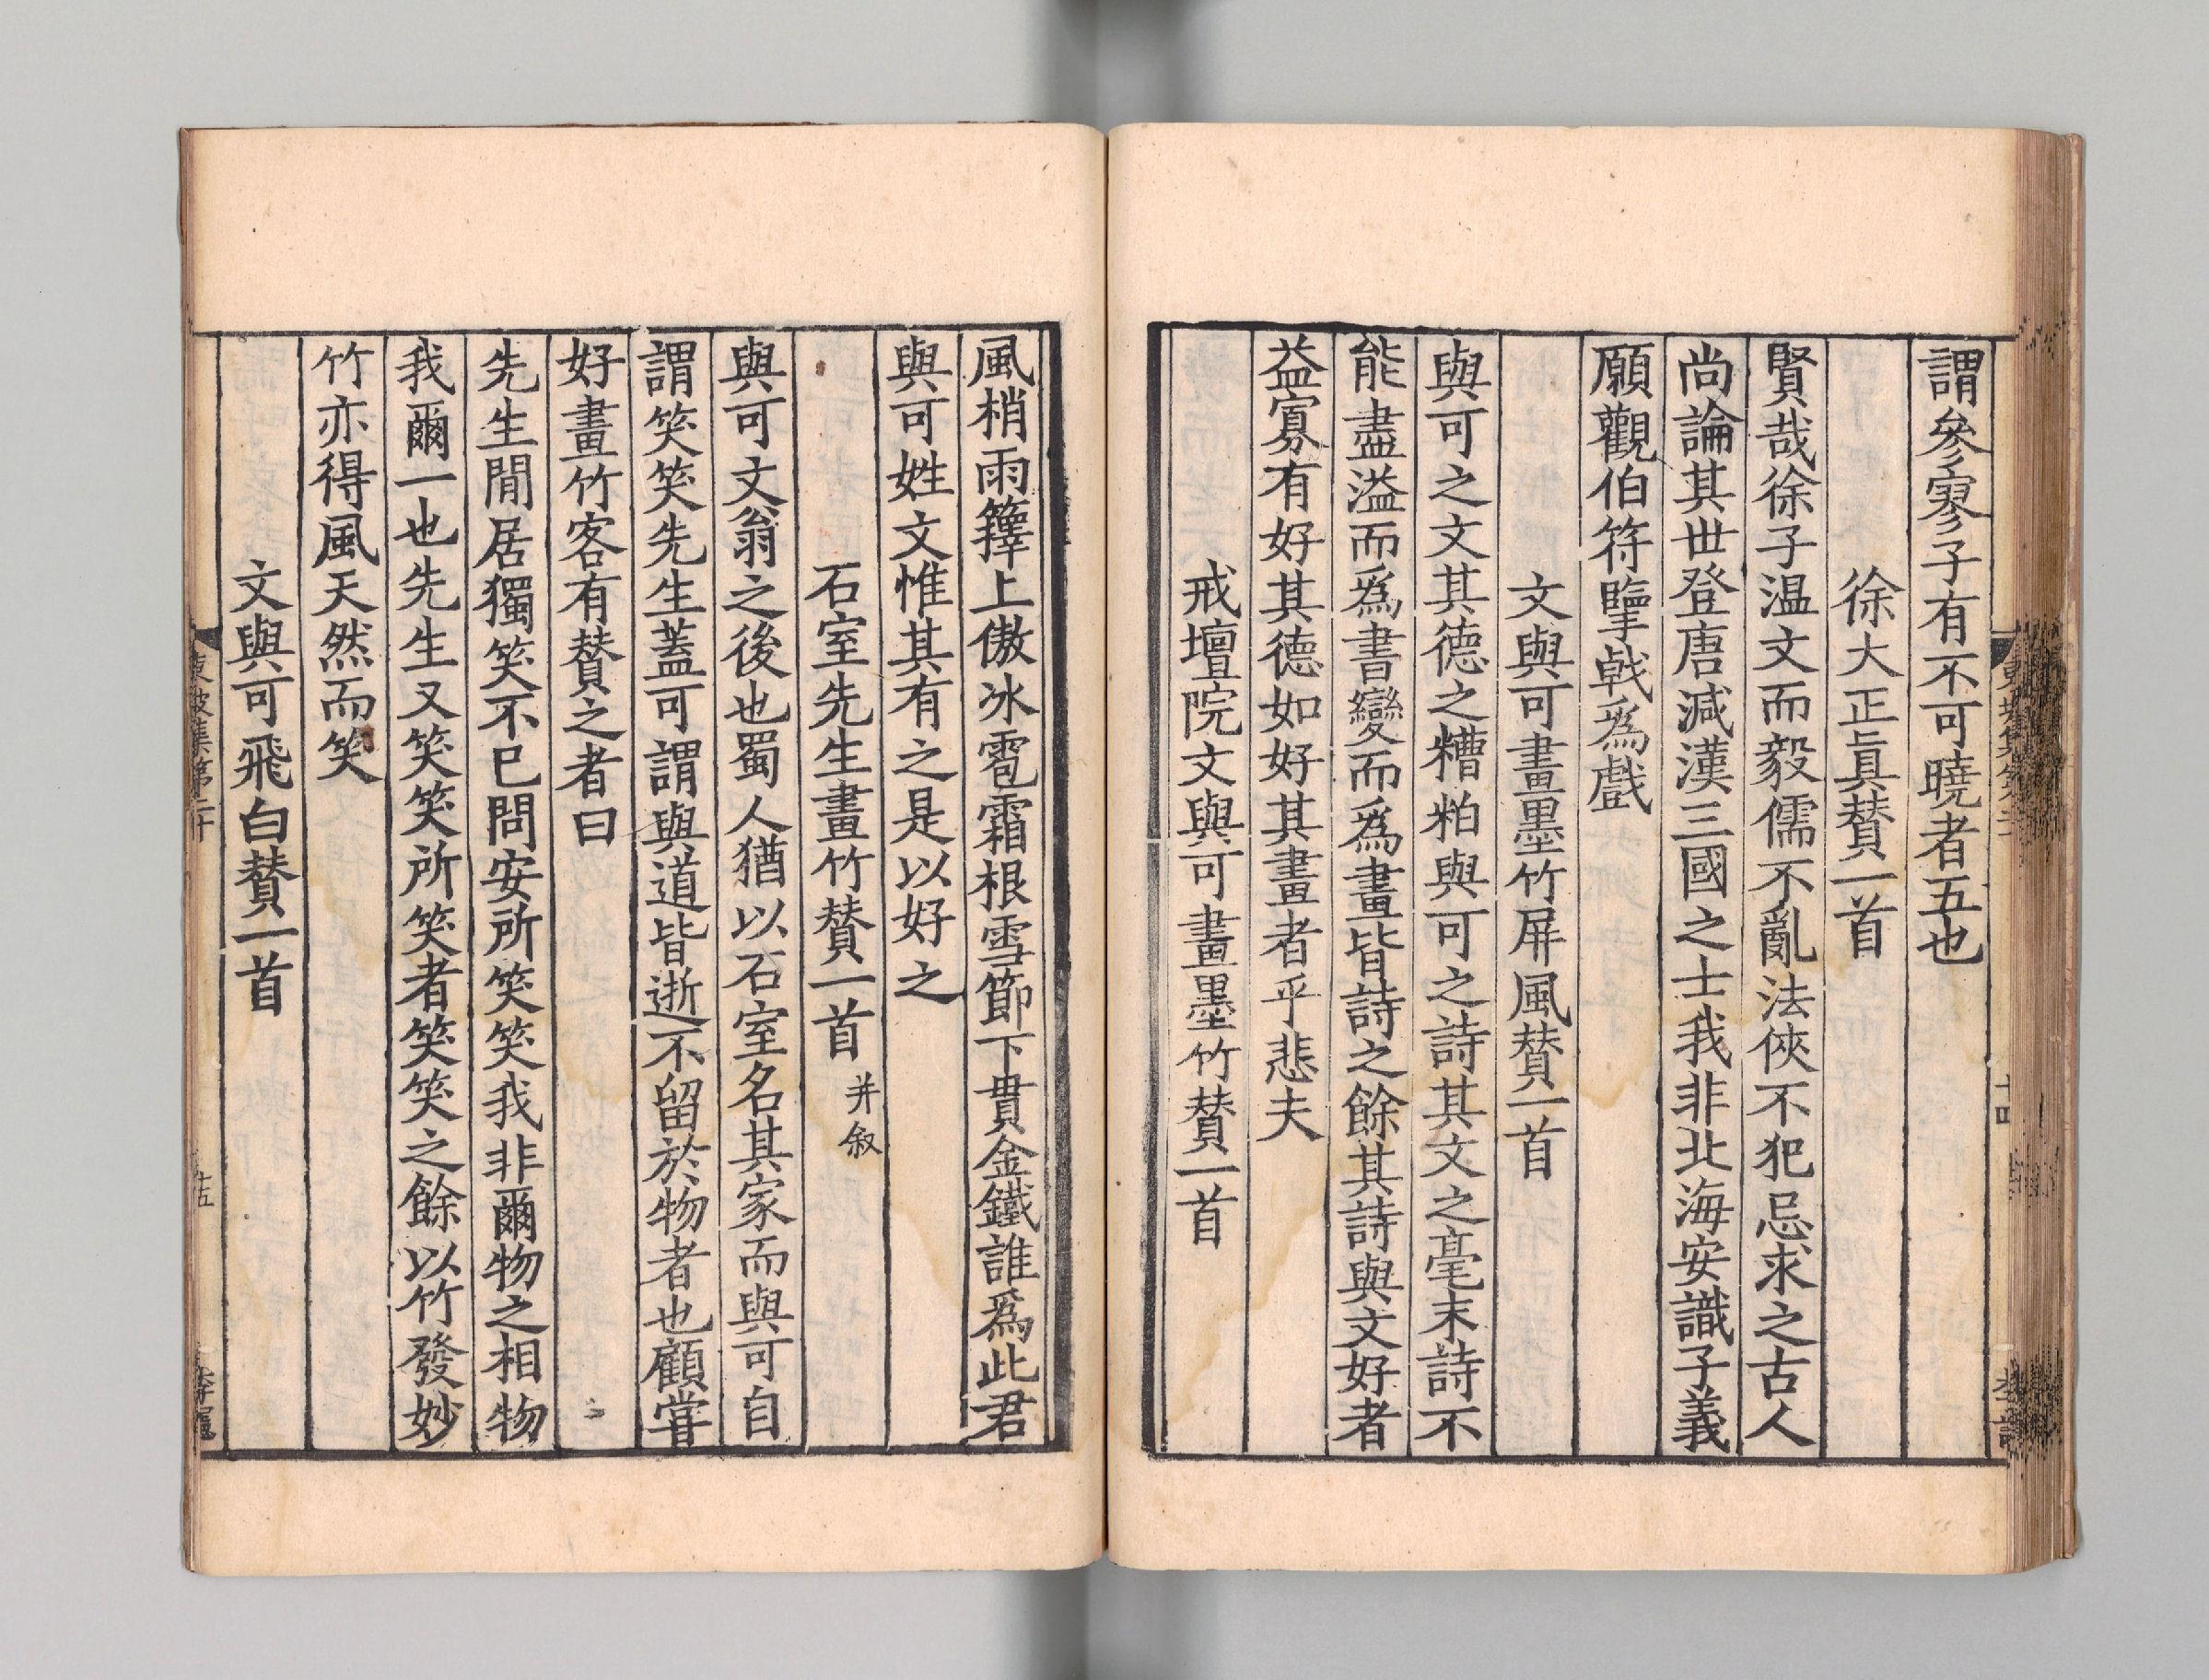 謂參寥子有不可曉者五也
徐大正眞賛一首
賢哉徐子温文而毅儒不亂法俠不犯忌求之古人
尚論其世登唐減漢三國之士我非北海安識子義
願觀伯符擥戟爲戲
文與可畫墨竹屏風賛一首
與可之文其德之糟粕與可之詩其文之毫末詩不
能盡溢而爲書變而爲畫皆詩之餘其詩與文好者
益寡有好其德如好其畫者乎悲夫
戒壇院文與可畫墨竹賛一首
風梢雨籜上傲冰雹霜根雪節下貫金鐵誰爲此君
與可姓文惟其有之是以好之
石室先生畫竹賛一首并叙
與可文翁之後也蜀人猶以石室名其家而與可自
謂笑笑先生蓋可謂與道皆逝不留於物者也顧甞
好畫竹客有賛之者曰
先生閒居獨笑不已問安所笑笑我非爾物之相物
我爾一也先生又笑笑所笑者笑笑之餘以竹發妙
竹亦得風夭然而笑
文與可飛白賛一首
東坡集第二十
十五